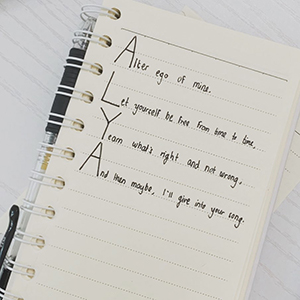 Alter ego of mine.
Let yourself be free from time to time,
Yearn what's right and not wrong,
And then maybe, I'll give into your song.